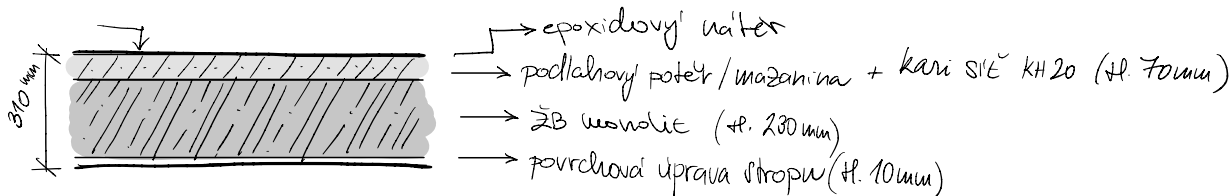 epoxidový nátěr
podlahový potěr/mazanina + kari síť KH20 (tl. 70mm)
310 mm
ŽB monolit (tl. 230mm)
povrchová úprava stropu (tl. 10mm)